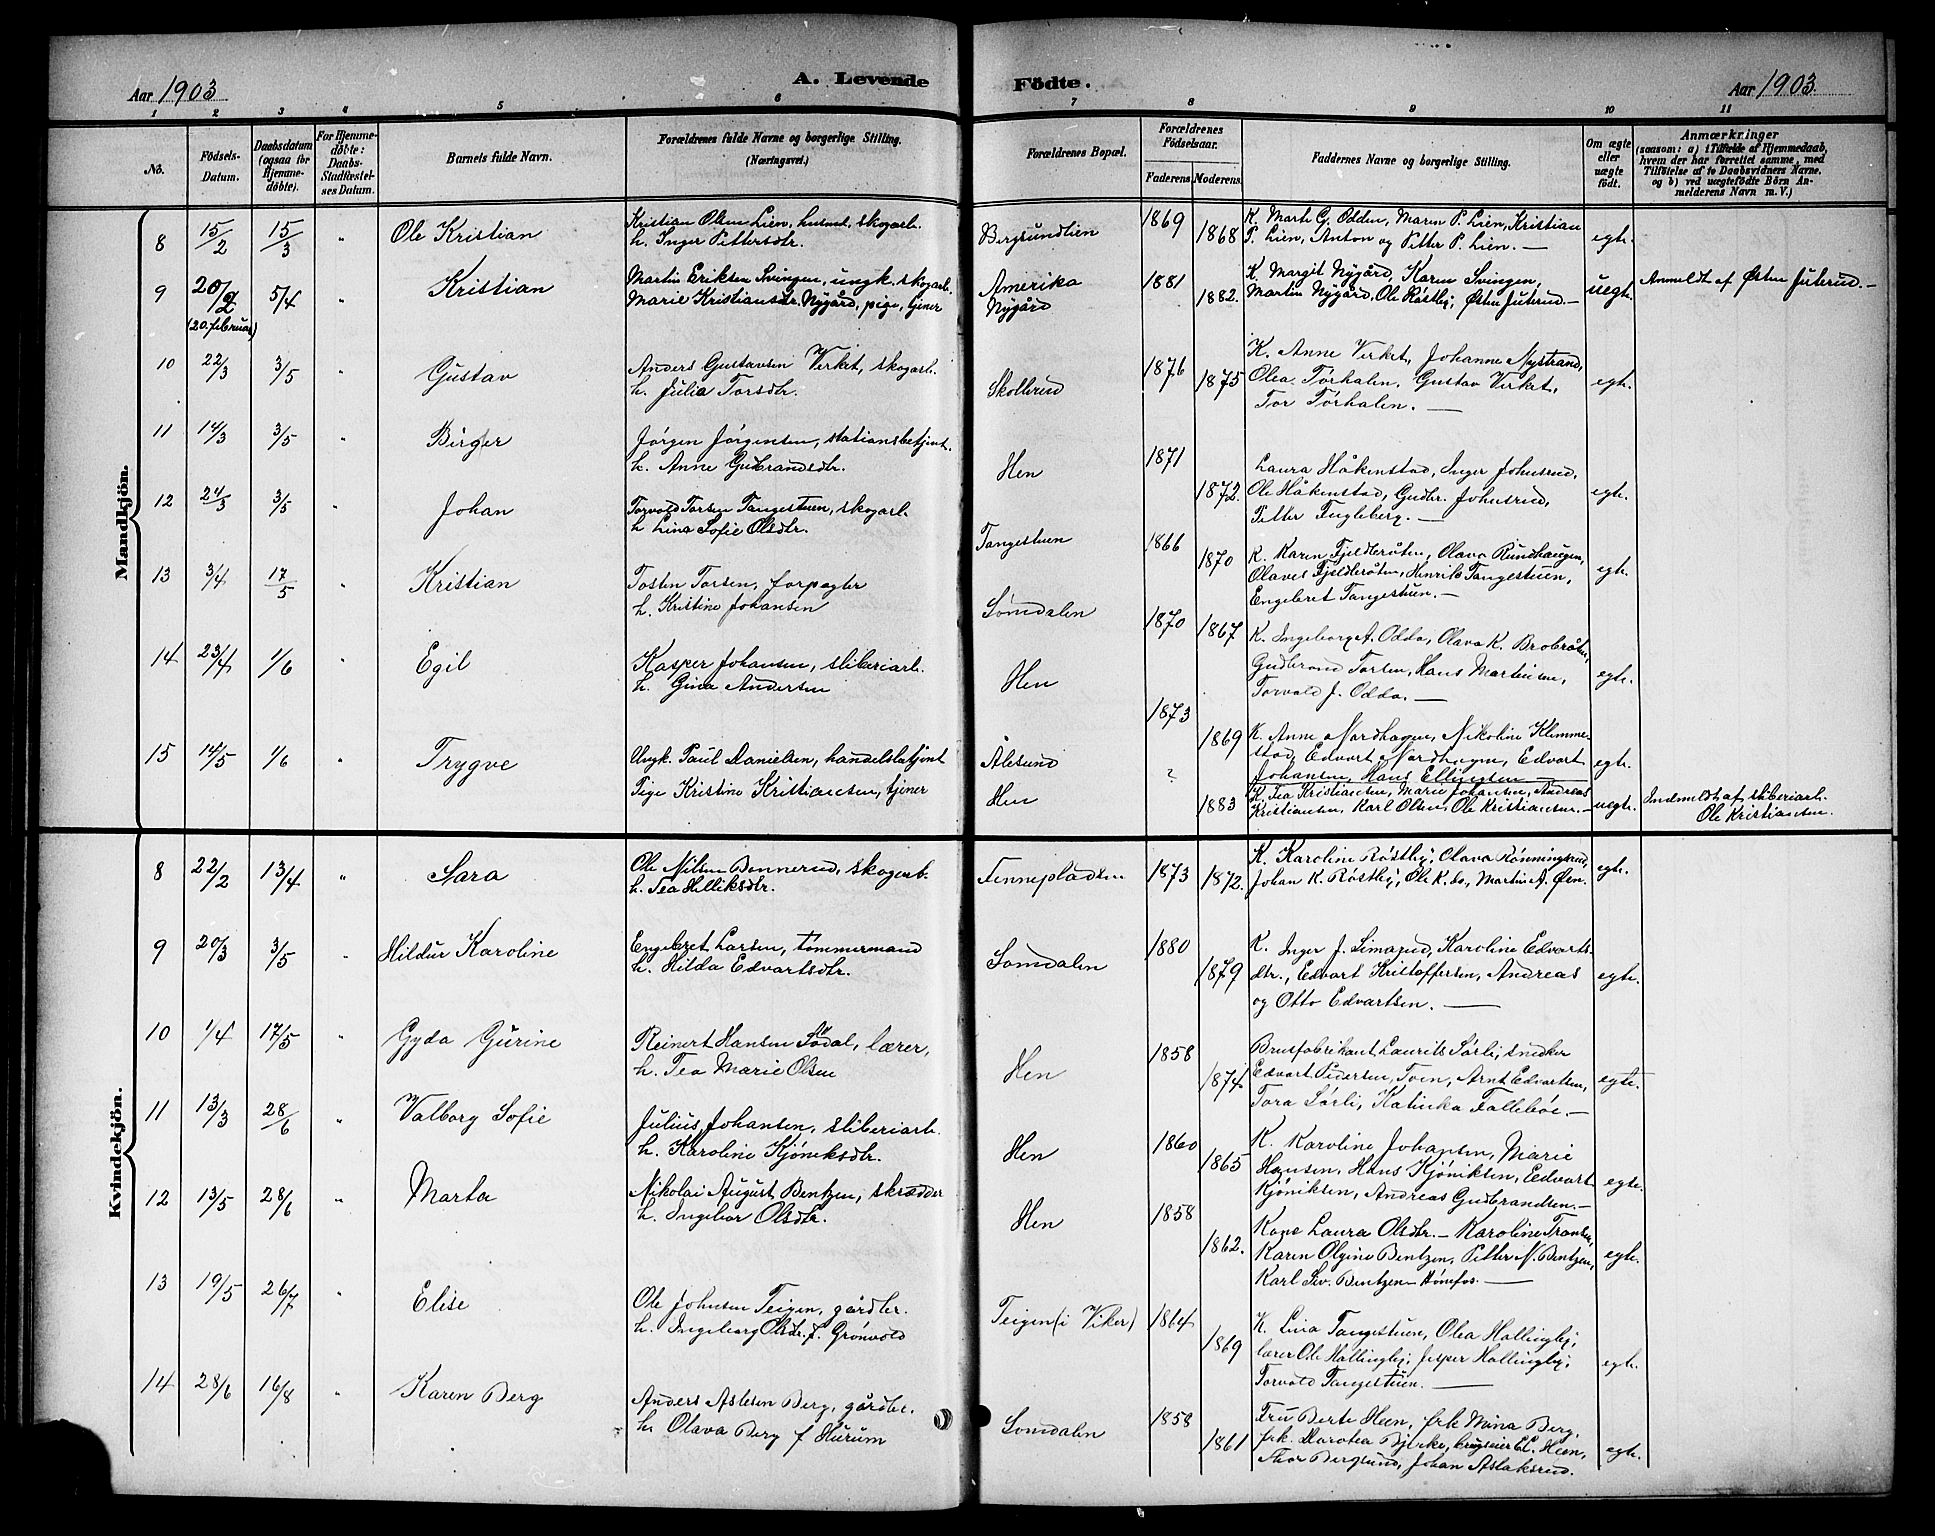 Aar 1903 A. Levende Födte. Aar 1903
1 2 3 4 5 6 7 8 9 10 11
No. Födsels-Datum. Daabsdatum (ogsaa for Hjemmedöbte). For Hjemmedöbte: Daabs-Stadfæstelses Datum. Barnets fulde Navn. Forældrenes fulde Navne og borgerlige Stilling. (Næringsvei.) Forældrenes Bopæl. Forældrenes Födselsaar. Faderens Moderens. Faddernes Navne og borgerlige Stilling. Om ægte eller uægte födt. Anmærkninger (saasom: a) i Tilfælde af Hjemmedaab, hvem der har forrettet samme, med Tilföielse af to Daabsvidners Navne, og b) ved uægtefödte Börn Anmelderens Navn m. V.)
Mandkjön.
8 15/2 15/3 " Ole Kristian Kristian Olsen Lien, husmd. skogarb. Bergsundlien 1869 K. Marte G. Odden, Maren P. Lien, Kristian
h. Inger Pittersdtr. 1868 P. Lien, Anton og Pitter P. Lien. — egte.
9 20/2 5/4 " Kristian Martin Eriksen Svingen, ungk. skogarb. Amerika 1881 K. Margit Nygård, Karen Svingen, uegte. Anmeldt af Østen Juterud. —
(20. februar) Marie Kristiansdtr. Nygård, pige, tjener Nygård 1882. Martin Nygård, Ole Røstby, Østen Juterud. —
10 22/3 3/5 " Gustav Anders Gustavsen Virket, skogarb. Skollerud 1876 K. Anne Virket, Johanne Nystrand,
h. Julia Torsdtr. 1875 Olea Torhalen, Gustav Virket, egte.
Tor Torhalen. —
11 14/3 3/5 " Birger Jörgen Jörgensen, stationsbetjent. Hen 1871 Laura Håkenstad, Inger Johnsrud,
h. Anne Gudbrandsdtr. 1872. Ole Håkenstad, Gudbr. Johnsrud, egte.
Pitter Fugleberg. —
12 24/3 3/5 " Johan Torvold Torsen Tangestuen, skogarb. Tangestuen 1866
h. Lina Sofie Olsdtr. 1870 K. Karen Fjeldbråten, Olava Rundhaugen,
Olaves Fjeldbråten, Henrik Tangestuen, egte.
Engebret Tangestuen. —
13 3/4 17/5 " Kristian Tosten Torsen, forpagter Somdalen 1870
h. Kristine Johansen 1867 K. Ingeborg A. Odda, Olava K. Brobråten,
Gudbrand Torsen, Hans Martinsen, egte.
Torvald J. Odda. —
14 23/4 1/6 " Egil Kasper Johansen, sliberiarb. Hen 1873
h. Gina Andersen 1869 K. Anne Nordhagen, Nikoline Klemme-
stad, Edvart Nordhagen, Edvart egte.
Johansen, Hans Ellingsen —
15 14/5 1/6 " Trygve Ungk. Paul Danielsen, handelsbetjent Ålesund ?
Pige Kristine Kristiansen, tjener Hen 1883 K. Tea Kristiansen, Marie Johansen, Andreas uegte. Indmeldt af sliberiarb.
Kristiansen, Karl Olsen, Ole Kristiansen. — Ole Kristiansen.
Kvindekjön.
8 22/2 13/4 " Sara Ole Nilsen Bonnerud, skogarb. Finnepladsen 1873 K. Karoline Røstby, Olava Rønningsrud, egte.
h. Tea Helliksdtr. 1872. Johan K. Røstby, Ole K. do, Martin A. Øen.
9 20/3 3/5 " Hildur Karoline Engebret Larsen, tømmermand Somdalen 1880 K. Inger J. Simarud, Karoline Edvarts-
h. Hilda Edvartsdtr. 1879 dtr., Edvart Kristoffersen, Andreas egte.
og Otto Edvartsen. —
10 1/4 17/5 " Gyda Gurine Reinert Hansen Södal, lærer, Hen 1858 Brusfabrikant Laurits Sørli, snedker
h. Tea Marie Olsen 1874 Edvart Pedersen, Toen, Arnt Edvartsen, egte.
Tora Sørli, Katinka Fallebøe —
11 13/3 28/6 " Valborg Sofie Julius Johansen, sliberiarb. Hen 1860 K. Karoline Johansen, Marie
h. Karoline Kjöniksdtr. 1865 Hansen, Hans Kjöniksen, Edvart egte.
Kjöniksen, Andreas Gudbrandsen. —
12 13/5 28/6 " Marta Nikolai August Bentzen, skrædder Hen 1858 Kone Laura Olsdtr. — Karoline Frantsen,
h. Ingebor Olsdtr. 1862. Karen Olgine Bentzen, Pitter N. Bentzen, egte.
Karl Sev. Bentzen — Hønefos. —
13 19/5 26/7 Elise Ole Johnsen Teigen, gårdbr. Teigen (i Viker) 1864 K. Lina Tangestuen, Olea Hallingby,
h. Ingeborg Olsdr. f. Grønvold 1869 lærer Ole Hallingby, Jesper Hallingby, egte.
Torvold Tangestuen. —
14 28/6 16/8 " Karen Berg Anders Aslesen Berg, gårdbr. Somdalen 1858 Fru Berte Heen, frk Mina Berg,
h. Olava Berg f Hurum 1861 frk. Dorotea Bjerke, brugseier E. Heen, egte.
Thor Bergsund, Johan Aslaksrud.